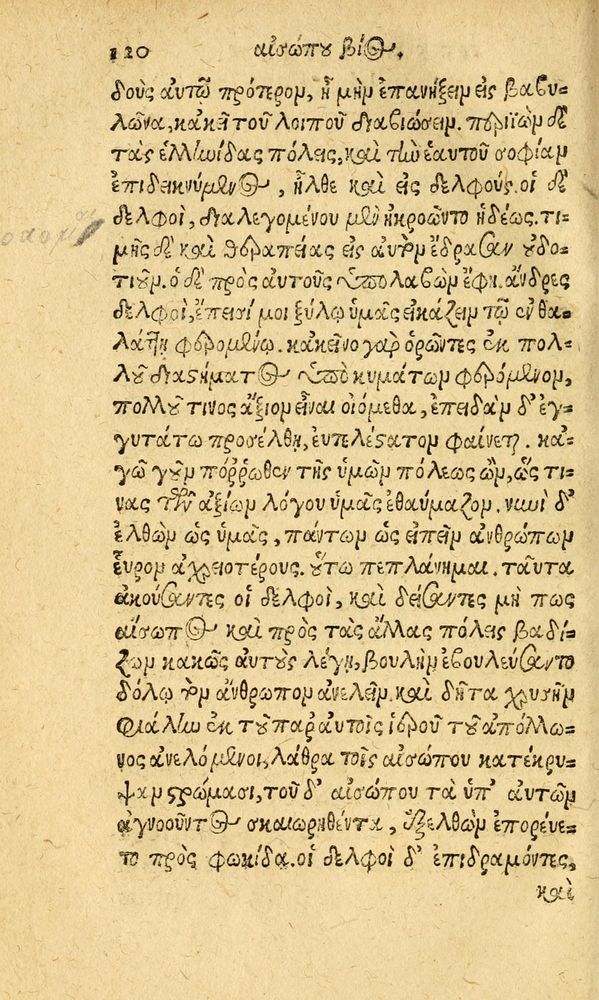 120 αἰσώπου βίος.
δοὺς αὐτῷ πρότερον, ἦ μὴν ἐπανήξειν εἰς βαβυ-
λῶνα, κἀκεῖ τοῦ λοιποῦ διαβιώσειν. περιϊὼν δὲ
τὰς ἑλληνίδας πόλεις, καὶ τὴν ἑαυτοῦ σοφίαν
ἐπιδεικνύμενος, ἦλθε καὶ εἰς δελφούς. οἱ δὲ
δελφοὶ, διαλεγομένου μὲν ἠκροῶντο ἡδέως. τι-
μῆς δὲ καὶ θεραπείας εἰς αὐτὸν ἔδρασαν οὐδο-
τιοῦν. ὁ δὲ πρὸς αὐτοὺς ὑπολαβὼν ἔφη. ἄνδρες
δελφοὶ, ἔπεισί μοι ξύλῳ ὑμᾶς εἰκάζειν τῷ ἐν θα-
λάττῃ φερομένῳ. κἀκεῖνο γὰρ ὁρῶντες ἐκ πολ-
λοῦ διαστήματος ὑπὸ κυμάτων φερόμενον,
πολλοῦ τινος ἄξιον εἶναι οἰόμεθα, ἐπειδὰν δ' ἐγ-
γυτάτω προσέλθῃ, εὐτελέστατον φαίνεται. κἀ-
γὼ γοῦν πόῤῥωθεν τῆς ὑμῶν πόλεως ὢν, ὥς τι-
νας τῶν ἀξίων λόγου ὑμᾶς ἐθαύμαζον. νυνὶ δ'
ἐλθὼν ὡς ὑμᾶς, πάντων ὡς εἰπεῖν ἀνθρώπων
εὗρον ἀχρειοτέρους. οὕτω πεπλάνημαι. ταῦτα
ἀκούσαντες οἱ δελφοὶ, καὶ δείσαντες μή πως
αἴσωπος καὶ πρὸς τὰς ἄλλας πόλεις βαδί-
ζων κακῶς αὐτοὺς λέγῃ, βουλὴν ἐβουλεύσαντο
δόλῳ τὸν ἄνθρωπον ἀνελεῖν. καὶ δῆτα χρυσῆν
φιάλην ἐκ τοῦ παρ' αὐτοῖς ἱεροῦ τοῦ ἀπόλλω-
νος ἀνελόμενοι, λάθρα τοῖς αἰσώπου κατέκρυ-
ψαν στρώμασι, τοῦ δ' αἰσώπου τὰ ὑπ' αὐτῶν
ἀγνοοῦντος σκαιωρηθέντα, ἐξελθὼν ἐπορεύε-
το πρὸς φωκίδα. οἱ δελφοὶ δ' ἐπιδραμόντες,
καὶ